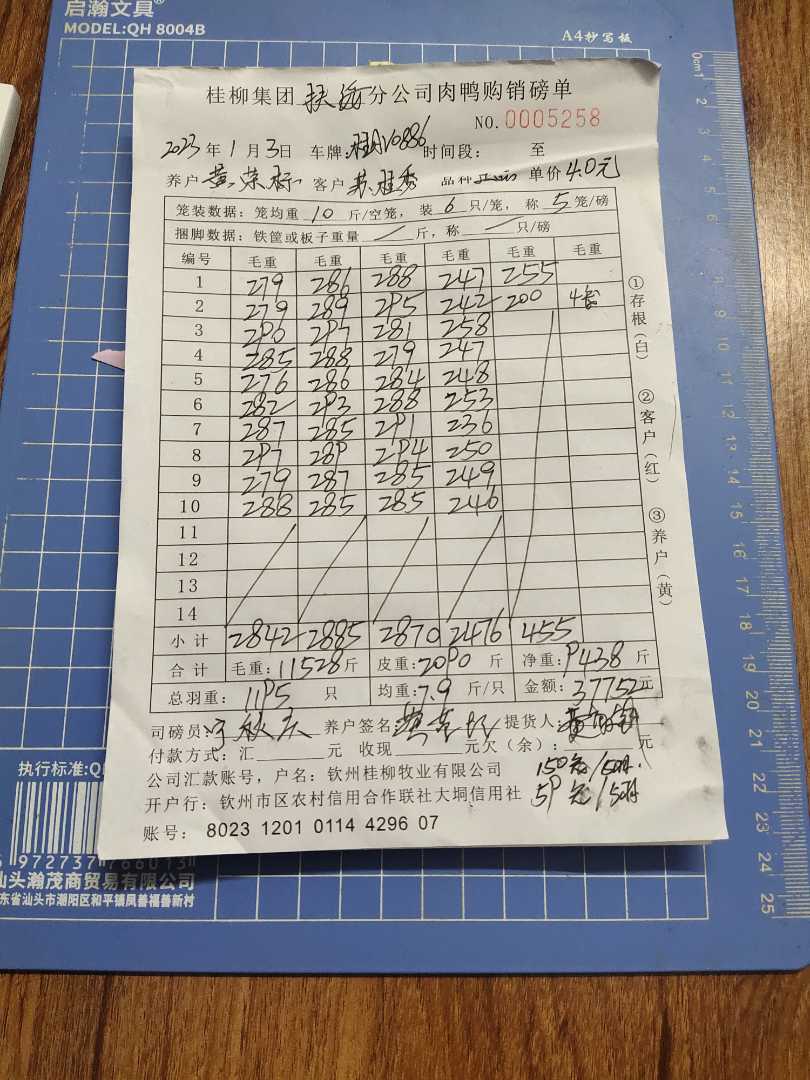 启瀚文具®
MODEL:QH 8004B
A4抄写板
桂柳集团 扶绥 分公司肉鸭购销磅单
NO.0005258
2023年1月3日 车牌: 时间段: 至
养户 黄荣标 客户 苏桂秀 品种 单价4.0元
笼装数据: 笼均重 10 斤/空笼, 装 6 只/笼, 称 5 笼/磅
捆脚数据: 铁筐或板子重量 / 斤, 称 / 只/磅
编号 毛重 毛重 毛重 毛重 毛重 毛重
1 279 286 288 247 255
2 279 289 295 242 200 4笼
3 290 297 281 258
4 285 288 279 247
5 276 286 284 248
6 282 293 288 253
7 287 285 291 236
8 297 289 294 250
9 279 287 285 249
10 288 285 285 246
11
12
13
14
小计 2842 2885 2870 2476 455
合计 毛重:11528斤 皮重:2090斤 净重:9438斤
总羽重: 1195 只 均重:7.9斤/只 金额:37752元
司磅员: 养户签名 提货人:
付款方式: 汇 元 收现 元欠(余): 元
公司汇款账号, 户名: 钦州桂柳牧业有限公司
150元/
开户行: 钦州市区农村信用合作联社大垌信用社
59元/
账号: 8023 1201 0114 4296 07
①存根(白) ②客户(红) ③养户(黄)
执行标准:Q
6 972737 766013
汕头瀚茂商贸易有限公司
东省汕头市潮阳区和平镇凤善福善新村
0cm1 2 3 4 5 6 7 8 9 10 11 12 13 14 15 16 17 18 19 20 21 22 23 24 25